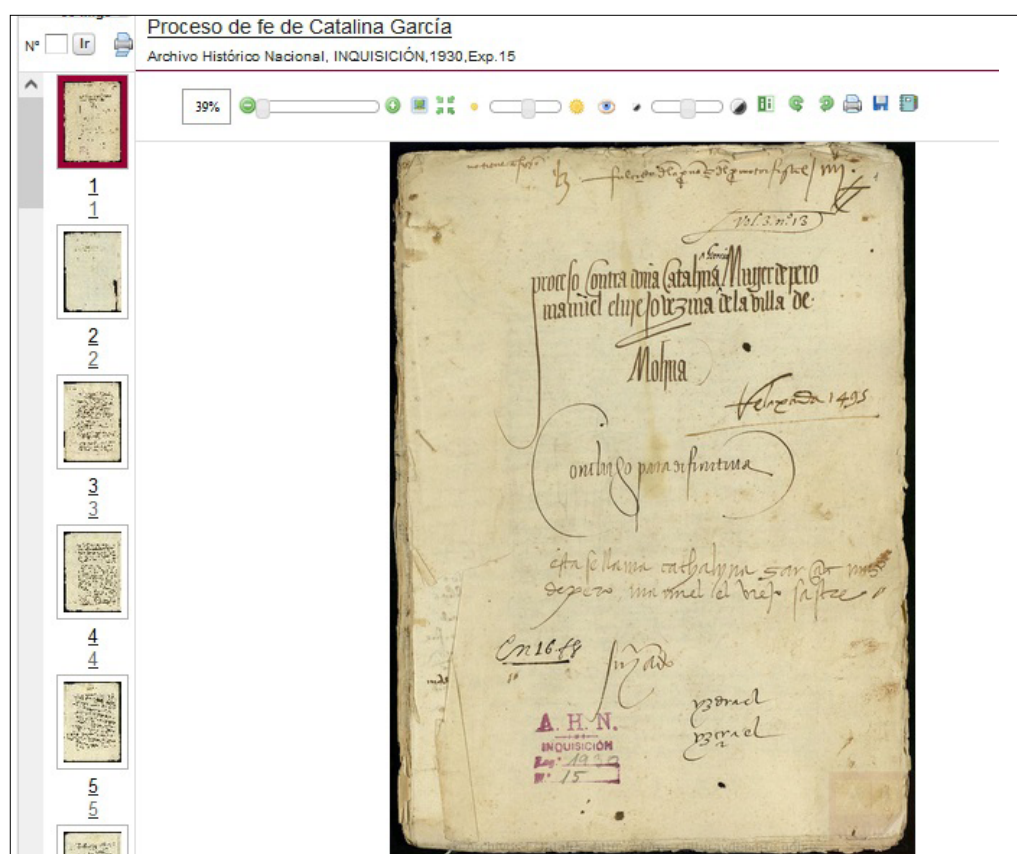 Nº Ir
Proceso de fe de Catalina García
Archivo Histórico Nacional, INQUISICIÓN,1930,Exp.15
39%
1
1
2
2
3
3
4
4
5
5
Vol. 3. nº 13
proceso contra Catalina Muger de pero
manuel el viejo vezina de la villa de
Molina
Relaxada 1495
para difinitiva
esta se llama cathalyna
de pero manuel el viejo sastre
En 16 fs
A. H. N.
INQUISICIÓN
Leg.º 1930
N.º 15